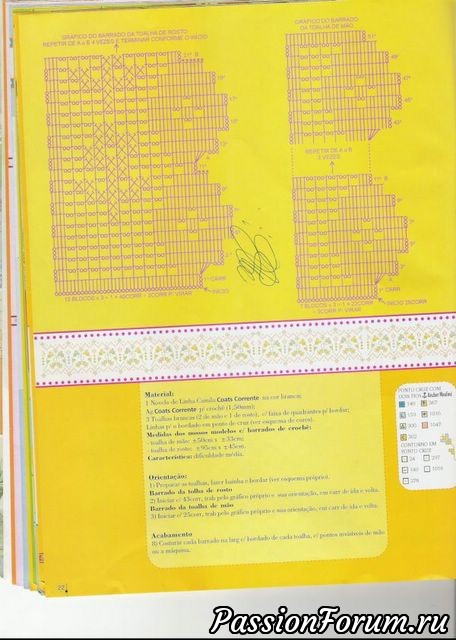 GRÁFICO DO BARRADO DA TOALHA DE ROSTO
REPETIR DE A a B 4 VEZES E TERMINAR CONFORME O INÍCIO
GRÁFICO DO BARRADO
DA TOALHA DE MÃO
REPETIR DE A a B
3 VEZES
1ª CARR
INÍCIO
1ª CARR
INÍCIO 25CORR
Material:
1 Novelo de Linha Camila Coats Corrente na cor branca;
Ag Coats Corrente p/ crochê (1,50mm);
3 Toalhas brancas (2 de mão e 1 de rosto), c/ faixa de quadrantes p/ bordar;
Linhas p/ o bordado em ponto de cruz (ver esquema de cores).
Medidas dos nossos modelos c/ barrados de crochê:
- toalha de mão: ±50cm x ±33cm;
- toalha de rosto: ±95cm x ±45cm.
Característica: dificuldade média.
Orientação:
1) Preparar as toalhas, fazer bainha e bordar (ver esquema próprio).
Barrado da tolha de rosto
2) Iniciar c/ 43corr, trab pelo gráfico próprio e sua orientação, em carr de ida e volta.
Barrado da toalha de mão
3) Iniciar c/ 25corr, trab pelo gráfico próprio e sua orientação, em carr de ida e volta.
Acabamento
8) Costurar cada barrado na larg c/ bordado de cada toalha, c/ pontos invisíveis de mão
ou a máquina.
PONTO CRUZ COM
DOIS FIOS Anchor Mouliné
CONTORNO EM
PONTO CRUZ
22
PassionForum.ru